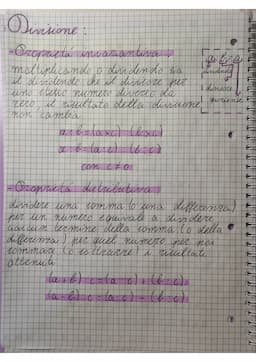 Divisione:
-Proprietà invariantiva
a : b = q
moltiplicando o dividendo sia
dividendo
il dividendo che il divisore per
divisore
uno stesso numero diverso da
quoziente
zero, il risultato della divisione
non cambia.
a : b = (a×c) : (b×c)
a : b = (a:c) : (b:c)
con c≠0
-Proprietà distributiva
dividere una somma (o una differenza)
per un numero equivale a dividere
ciascun termine della somma (o della
differenza) per quel numero per poi
sommare (o sottrarre) i risultati
ottenuti
(a+b) : c = (a:c) + (b:c)
(a-b) : c = (a:c) - (b:c)